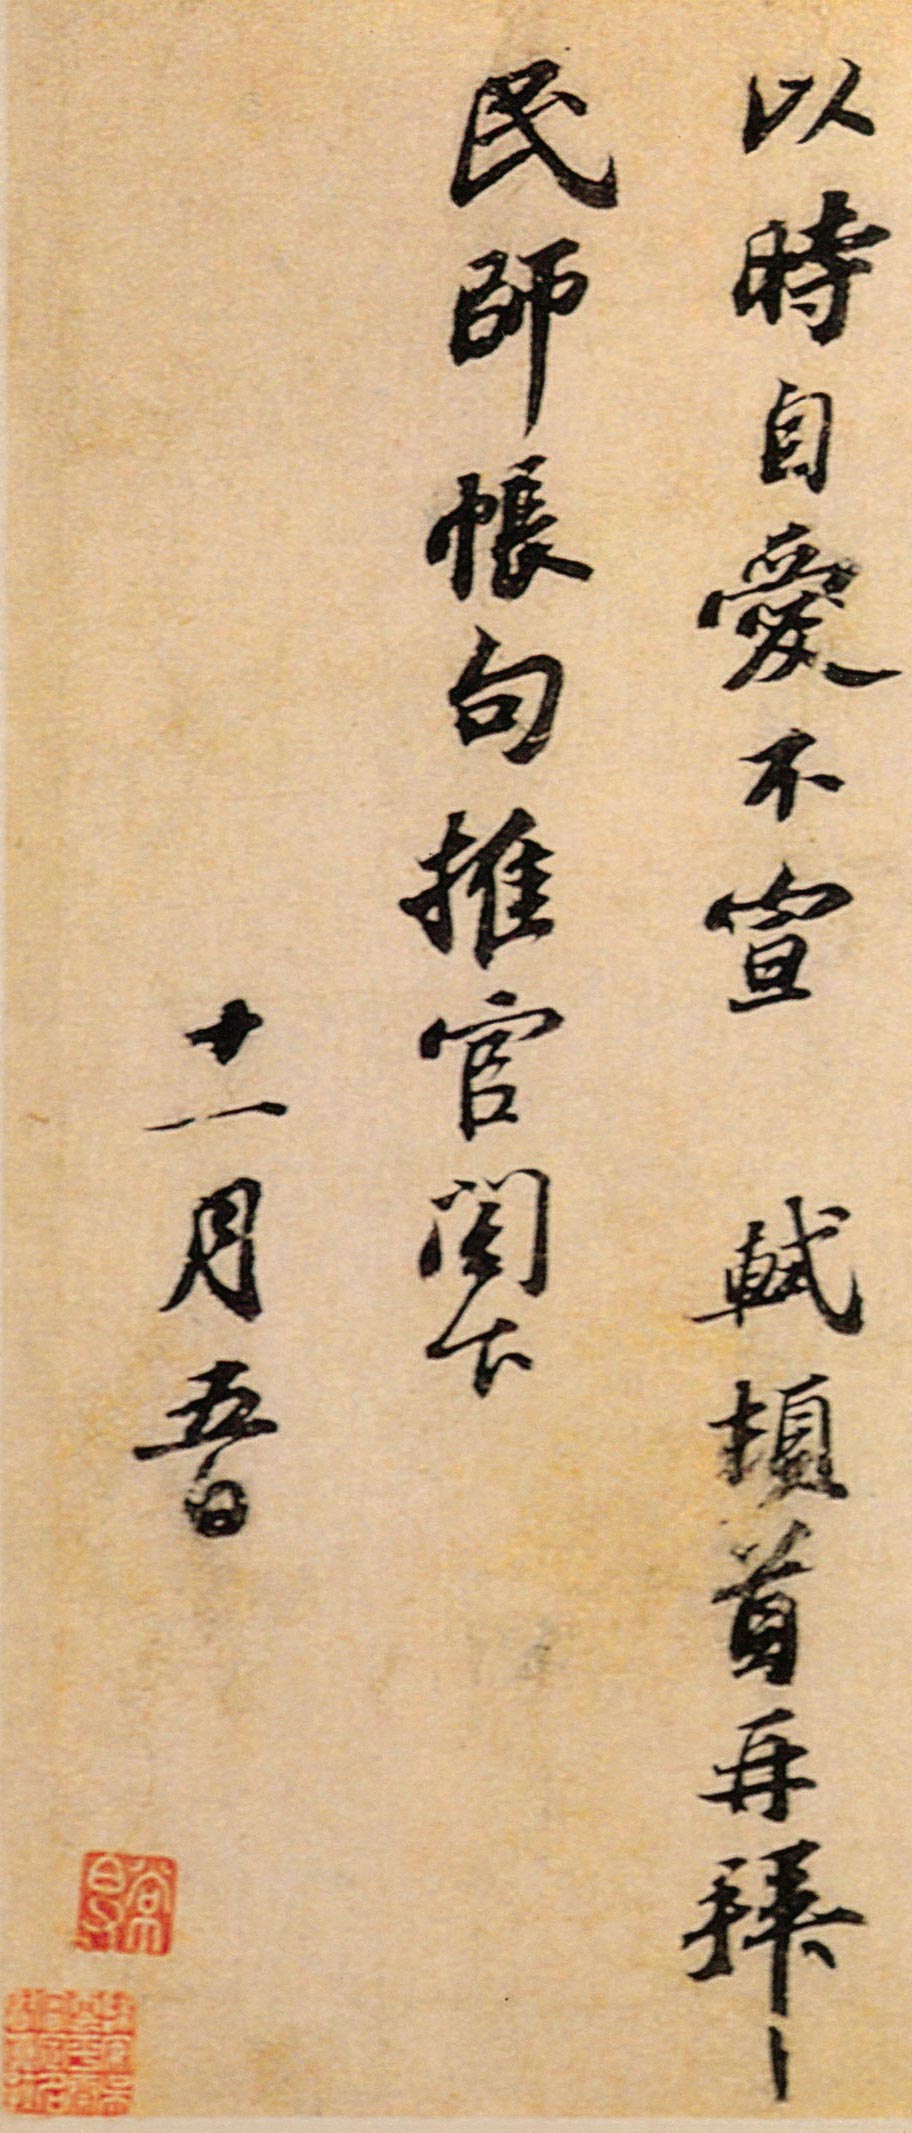 以時自愛不宣　軾頓首再拜
民師帳句推官閤下
十一月五日